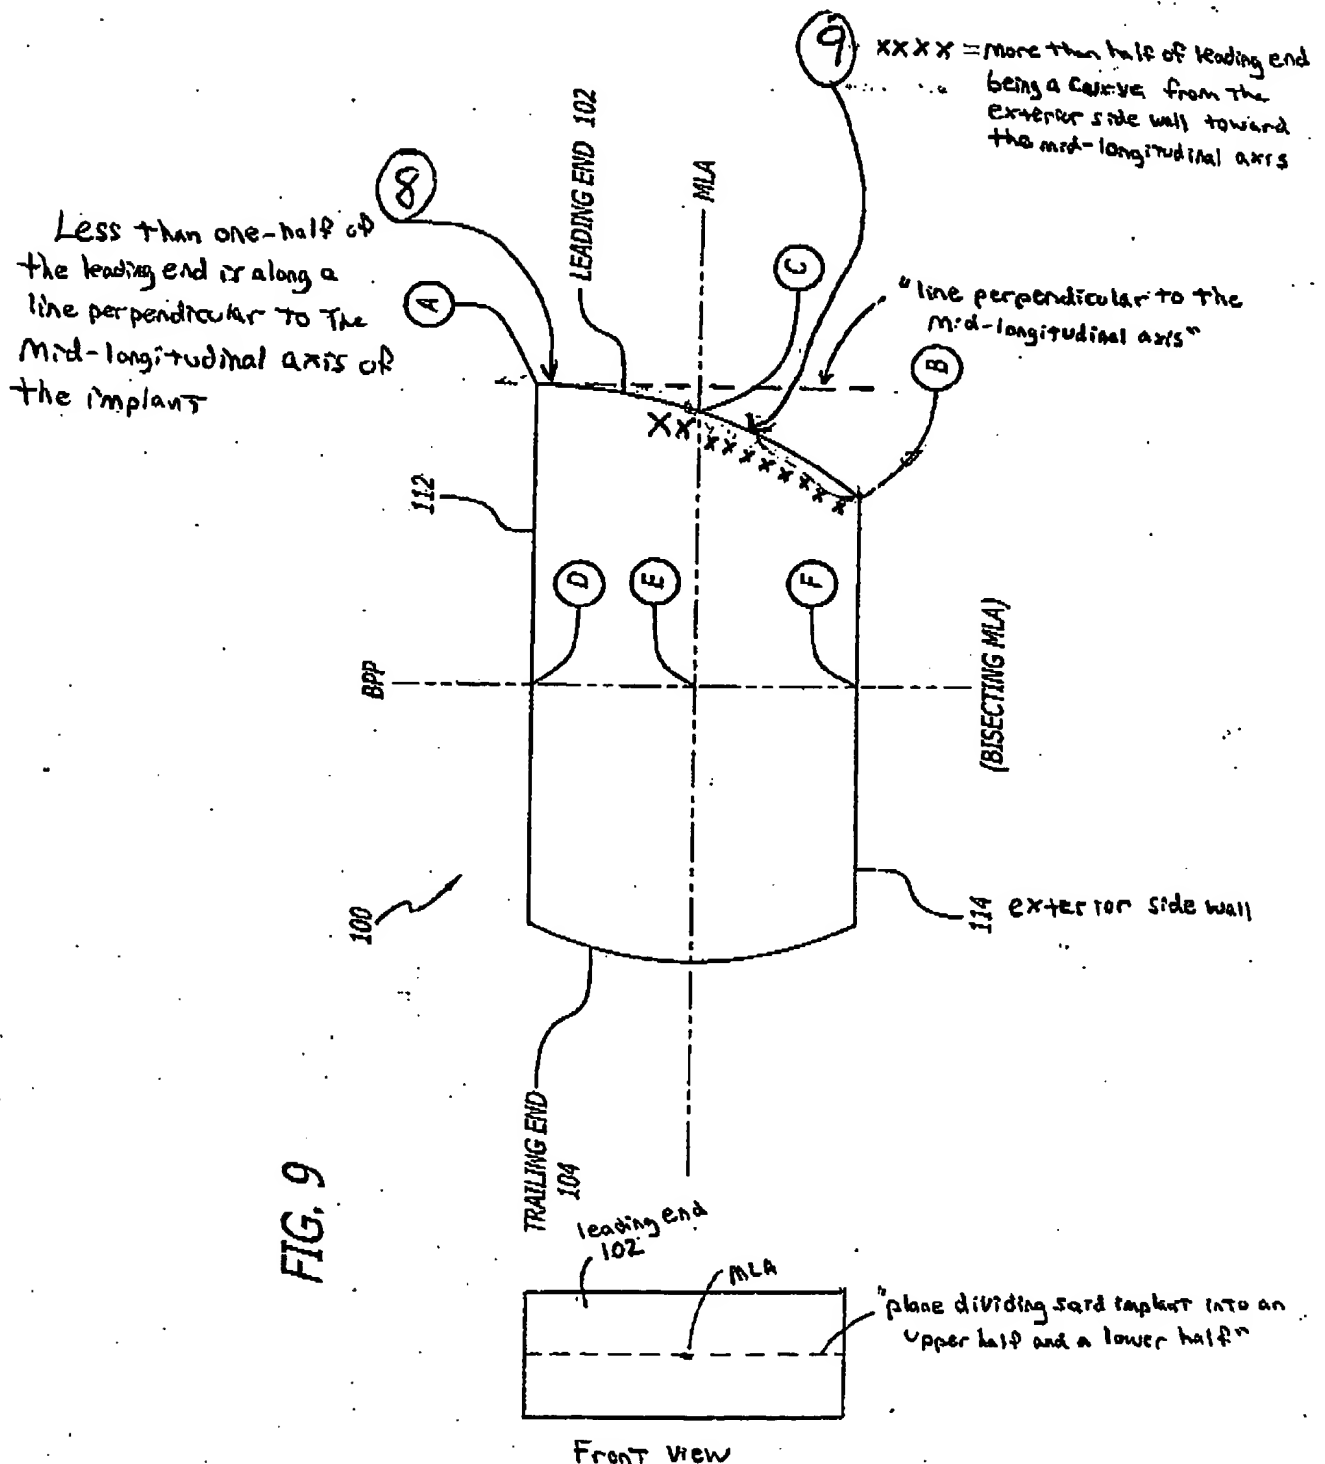 9
xxxx = more than half of leading end
being a curve from the
exterior side wall toward
the mid-longitudinal axis
8
Less than one-half of
the leading end is along a
line perpendicular to the
mid-longitudinal axis of
the implant
LEADING END 102
MLA
A
C
"line perpendicular to the
mid-longitudinal axis"
B
XX xxxxxxxx
112
D
E
F
BPP
(BISECTING MLA)
100
114 exterior side wall
TRAILING END
104
FIG. 9
leading end
102
MLA
"plane dividing said implant into an
upper half and a lower half"
Front view